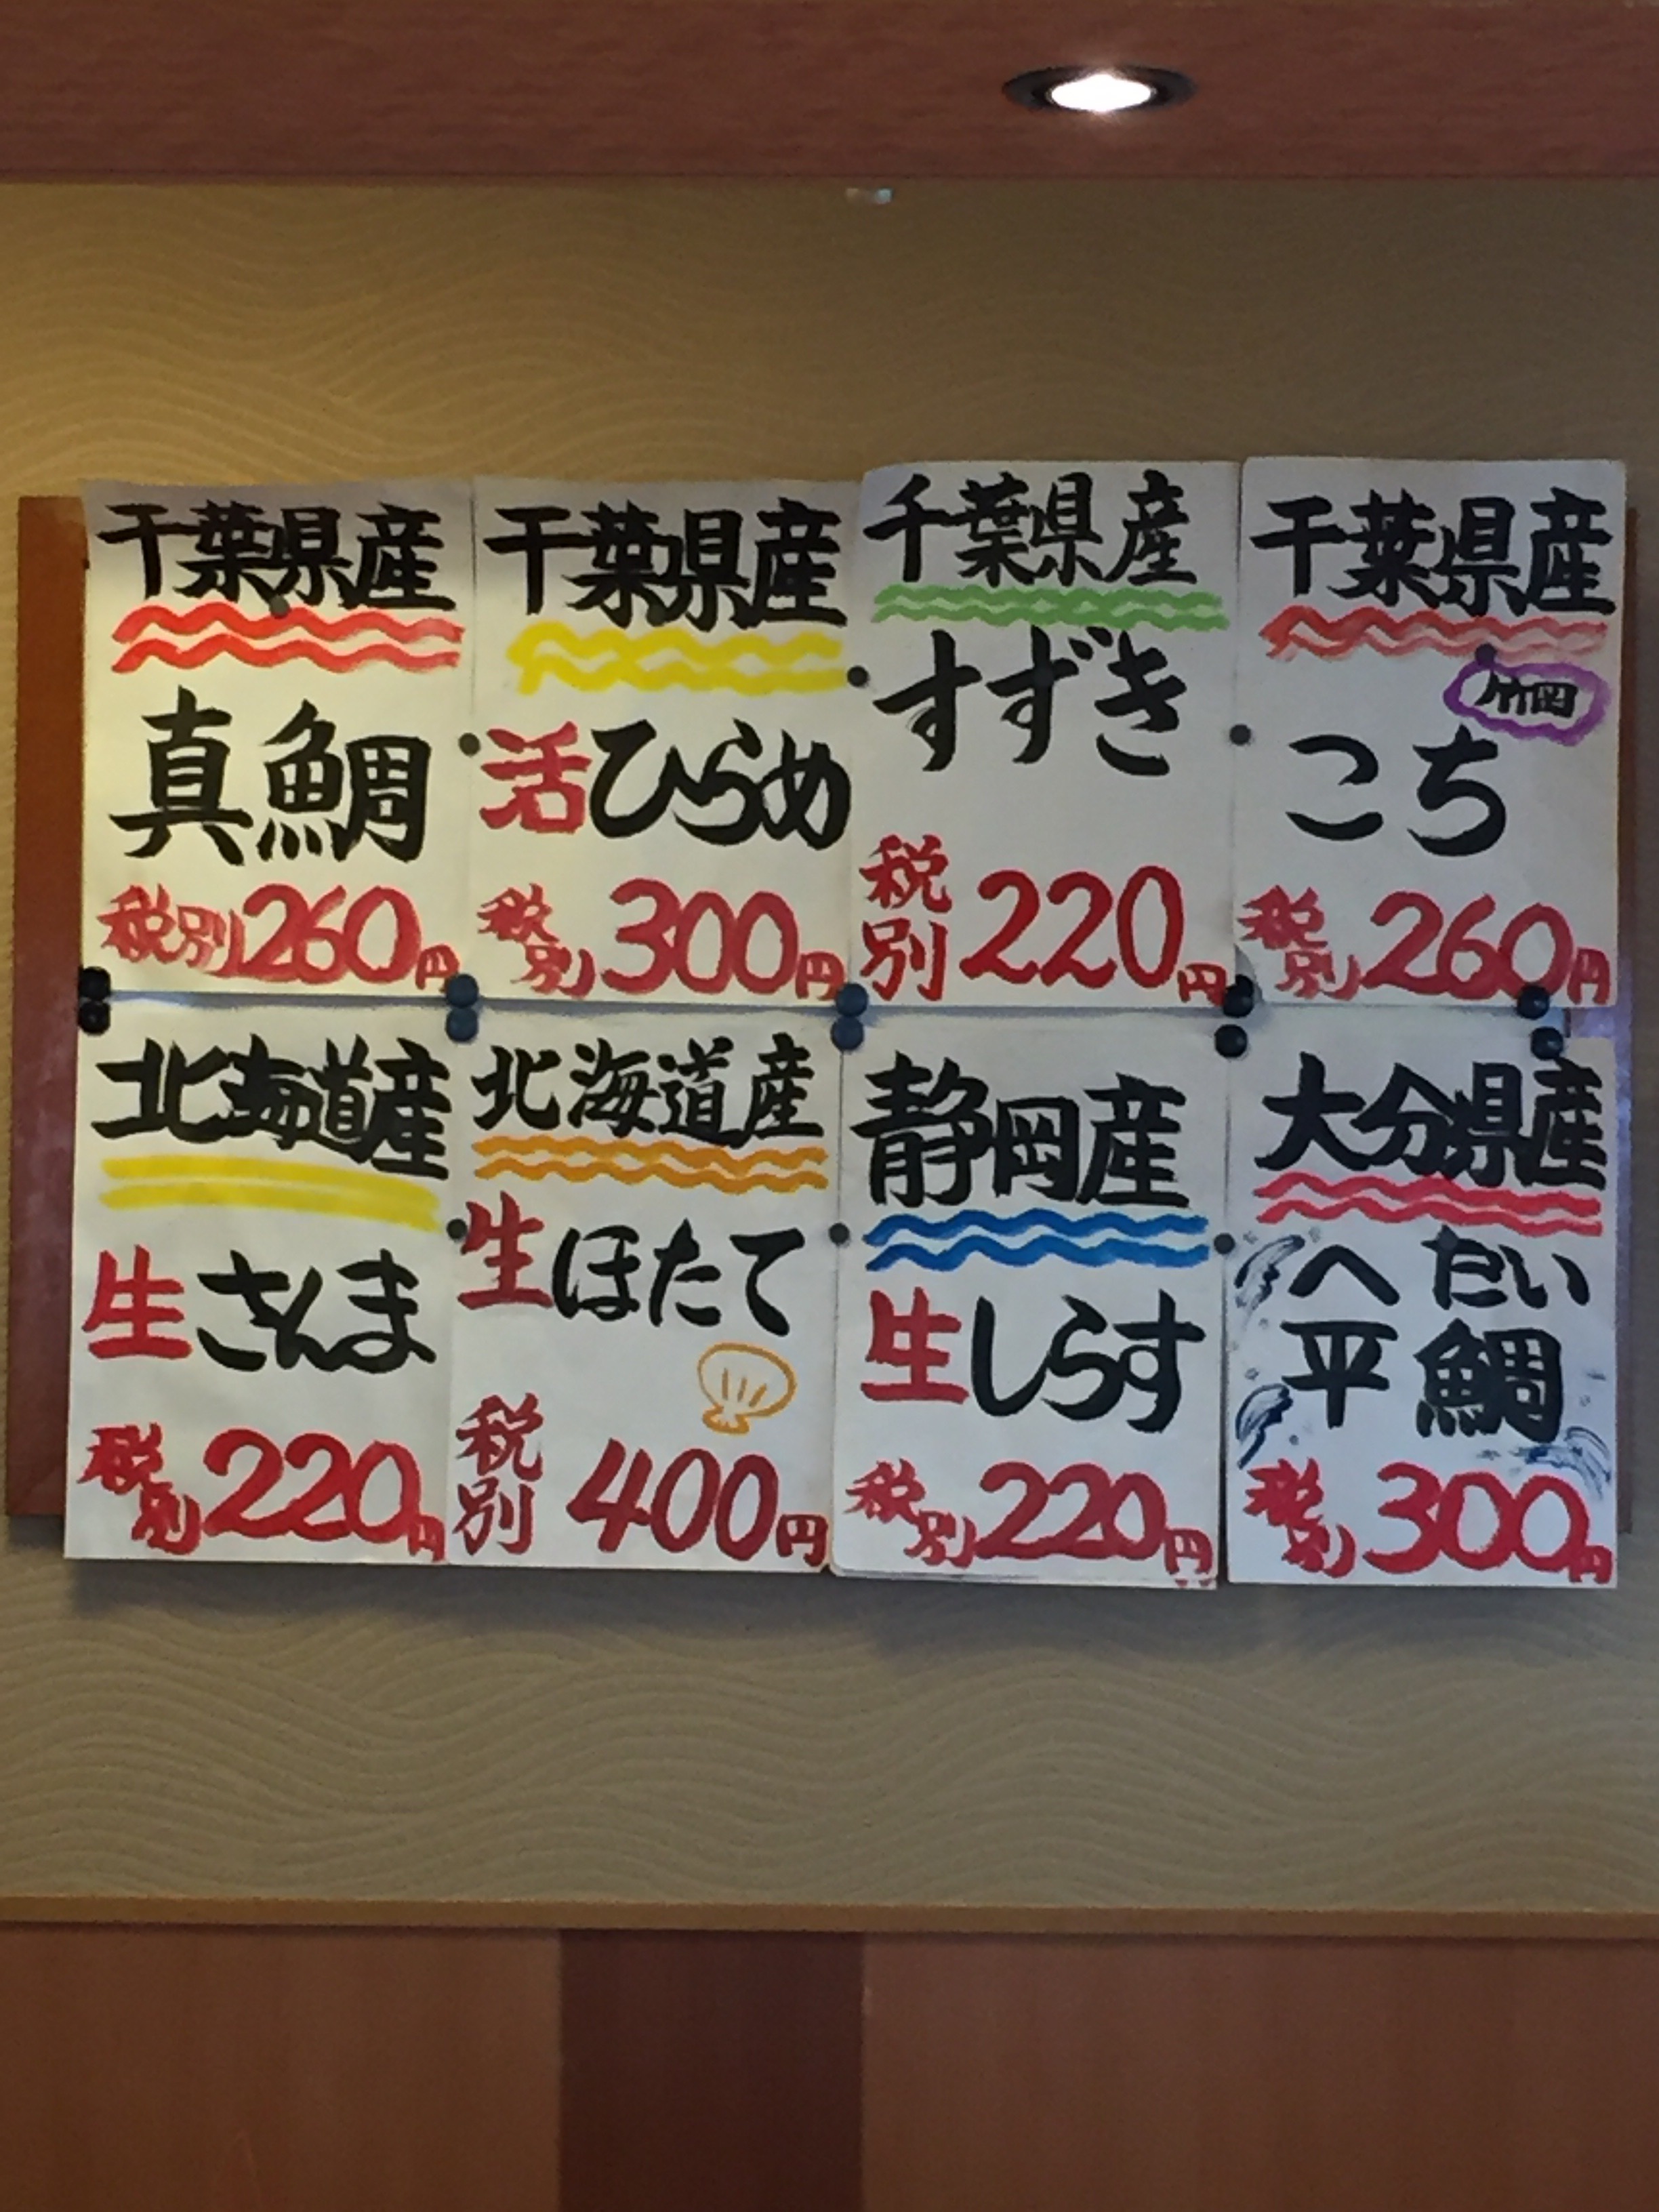 千葉県産
真鯛
税別260円
千葉県産
活ひらめ
税別300円
千葉県産
すずき
税別220円
千葉県産
竹岡
こち
税別260円
北海道産
生さんま
税別220円
北海道産
生ほたて
税別400円
静岡産
生しらす
税別220円
大分県産
へだい
平鯛
税別300円